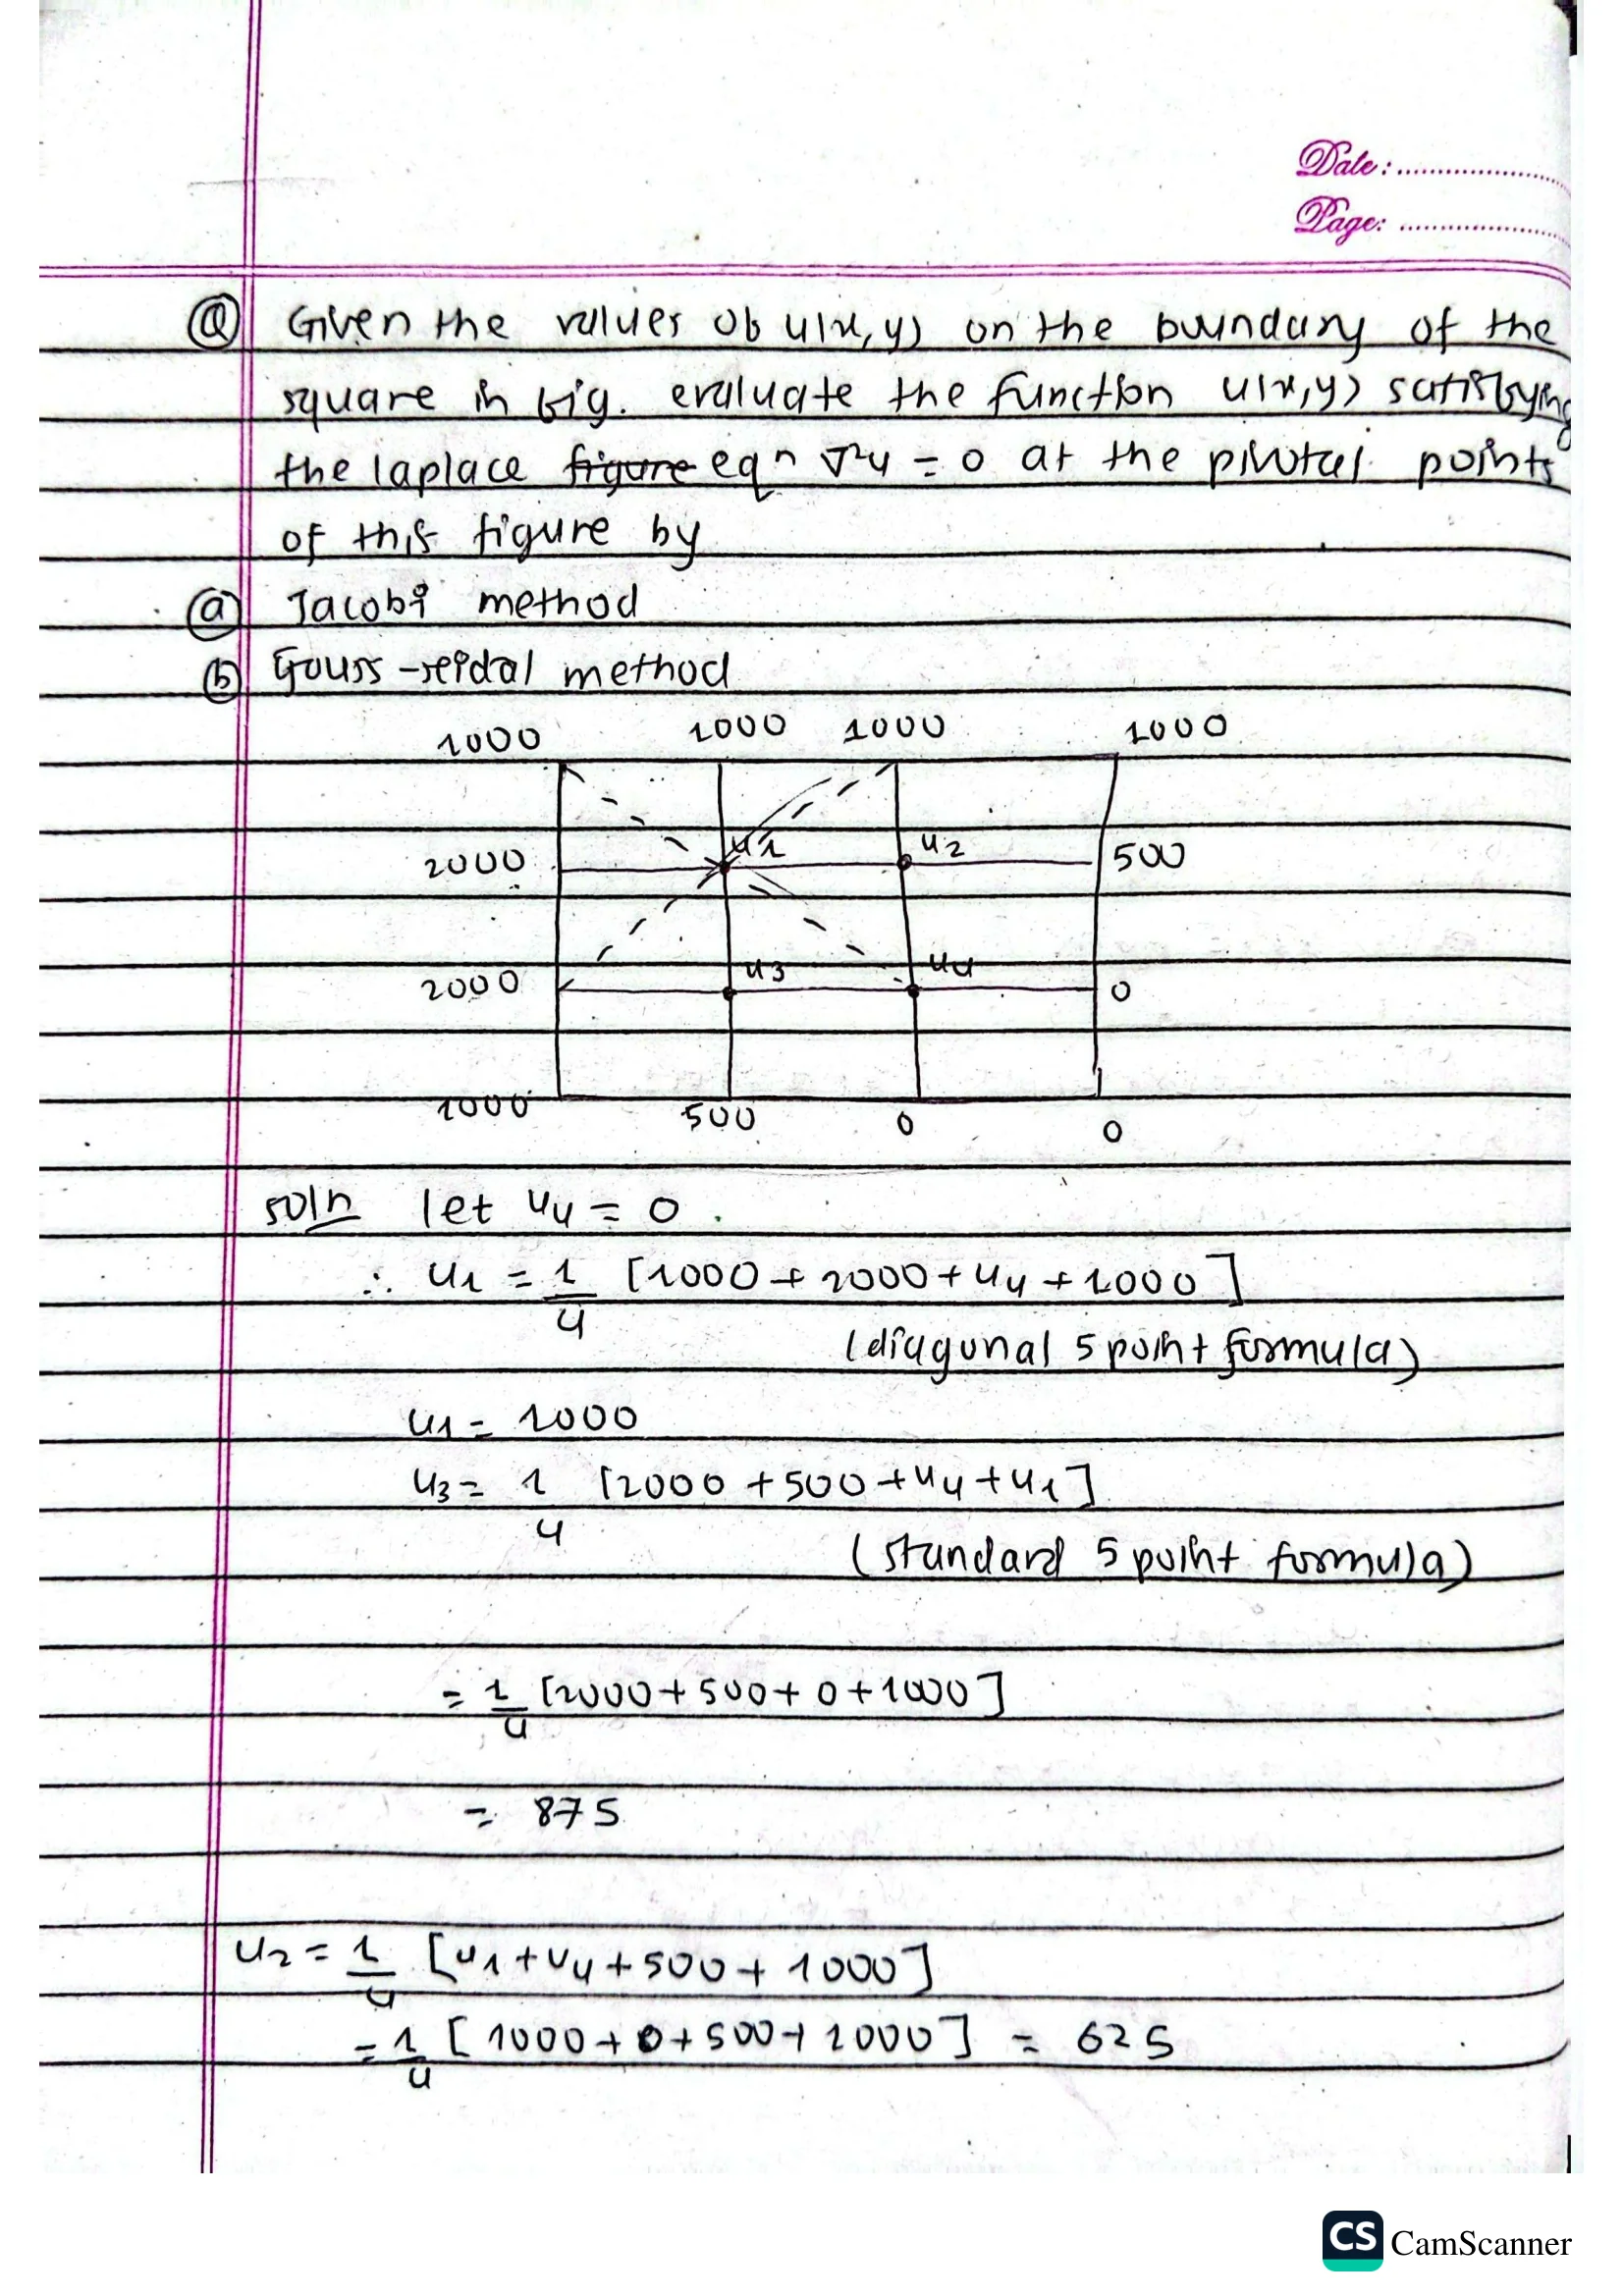 Date: ....................
Page: ....................
Q Given the values of u(x,y) on the boundary of the
square in fig. evaluate the function u(x,y) satisfying
the laplace figure eqn ∇²u = 0 at the pivotal points
of this figure by
a Jacobi method
b Gauss-seidal method
1000 1000 1000 1000
2000 u1 u2 500
2000 u3 u4 0
1000 500 0 0
soln let u4 = 0.
∴ u1 = 1/4 [1000 + 2000 + u4 + 1000]
(diagonal 5 point formula)
u1 = 1000
u3 = 1/4 [2000 + 500 + u4 + u1]
(standard 5 point formula)
= 1/4 [2000 + 500 + 0 + 1000]
= 875
u2 = 1/4 [u1 + u4 + 500 + 1000]
= 1/4 [1000 + 0 + 500 + 1000] = 625
CS CamScanner